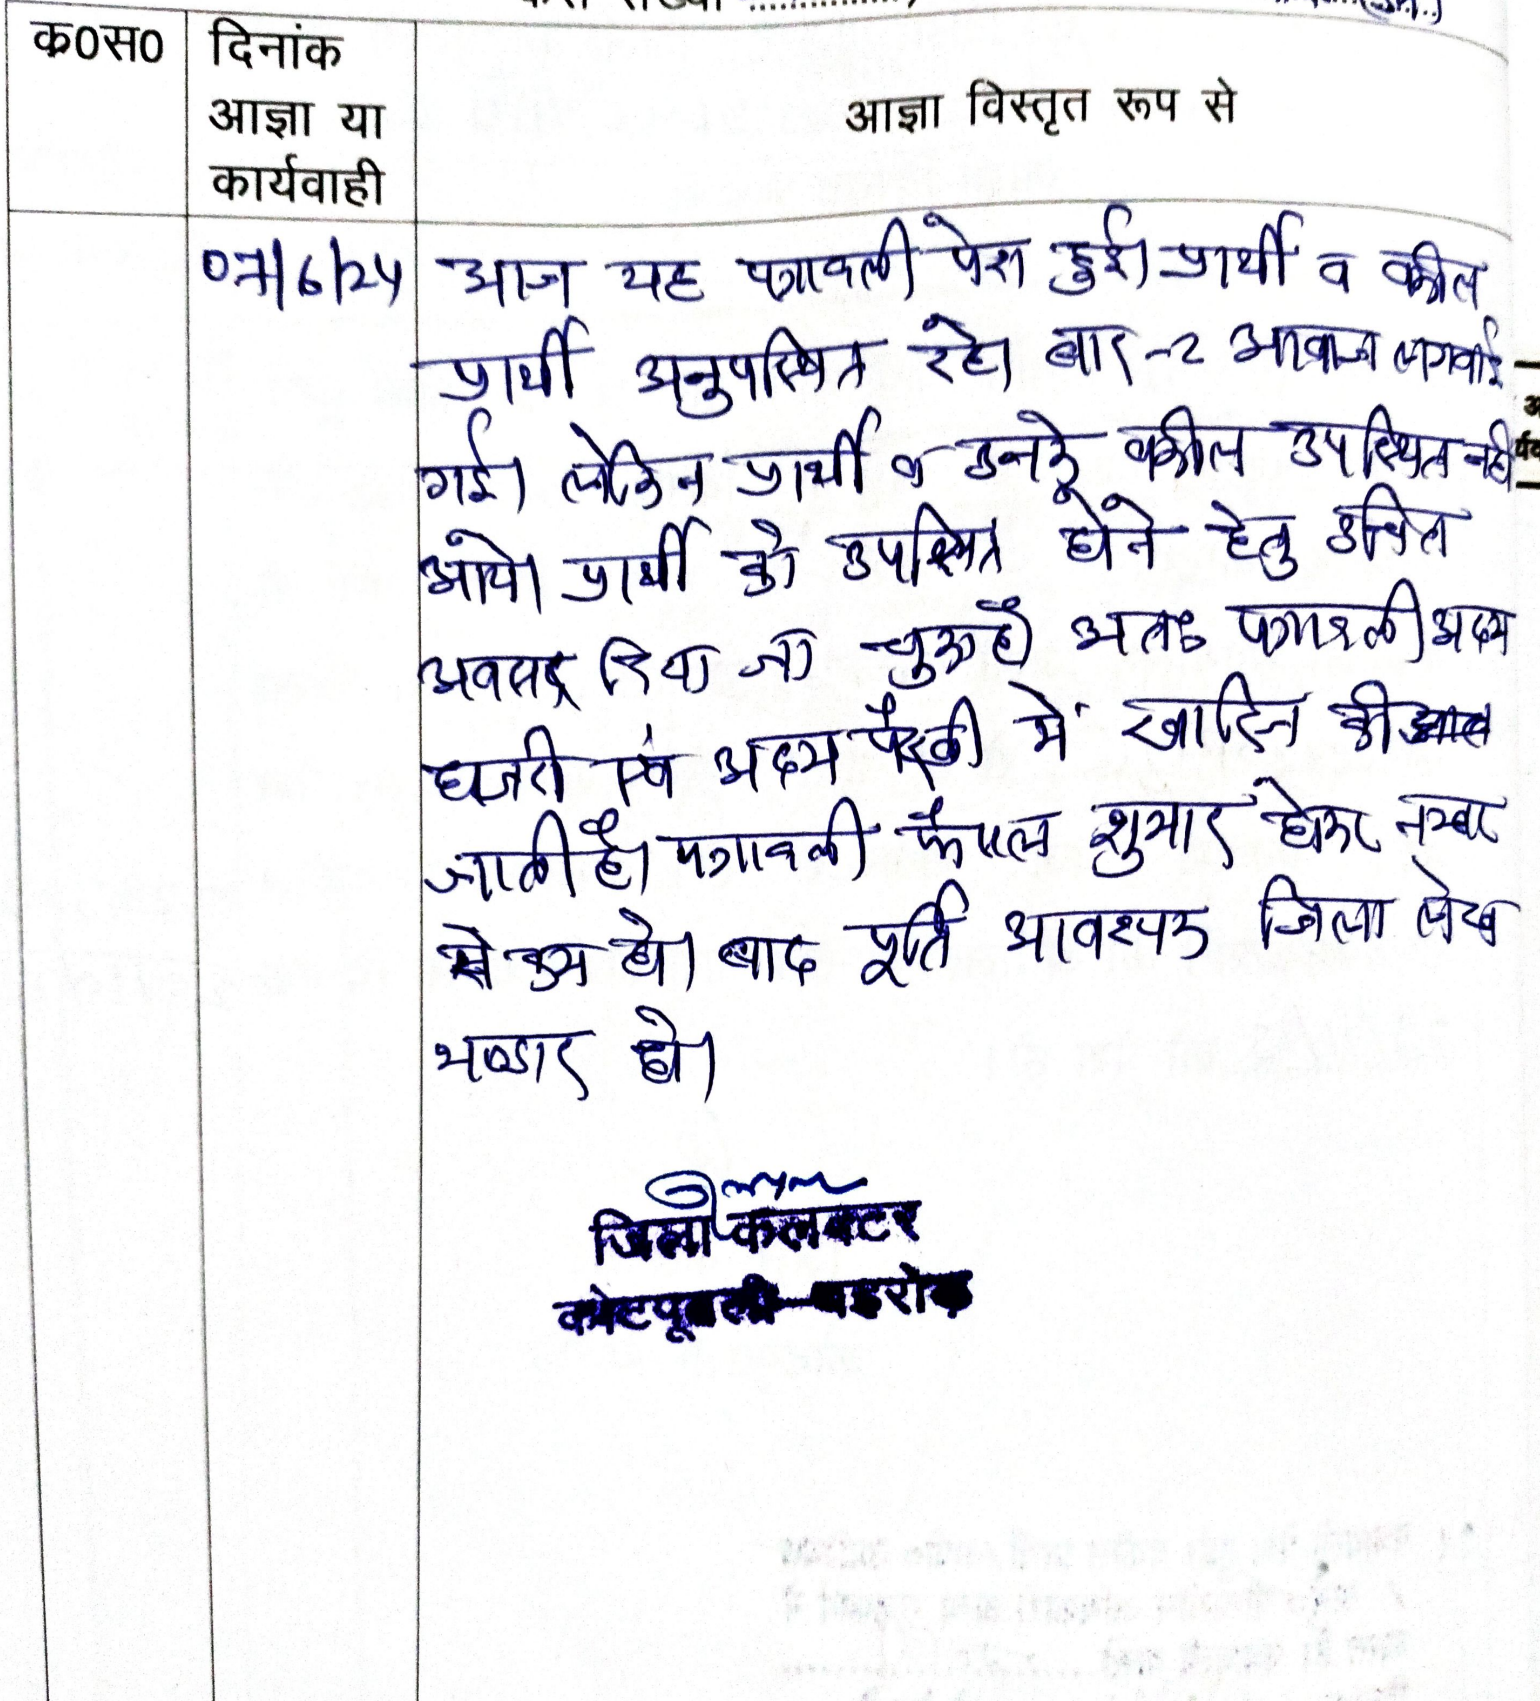 क०स० दिनांक आज्ञा या कार्यवाही आज्ञा विस्तृत रूप से
07/6/24 आज यह पत्रावली पेश हुई। प्रार्थी व वकील
प्रार्थी अनुपस्थित रहे। बार-2 आवाज लगवाई
गई। लेकिन प्रार्थी व उनके वकील उपस्थित नही
आये। प्रार्थी को उपस्थित होने हेतु उचित
अवसर दिया जा चुका है अतः पत्रावली अदम
हाजरी एवं अदम पैरवी में खारिज की
जाती है। पत्रावली फैसल शुमार होकर नम्बर
से कम हो। बाद पूर्ति आवश्यक जिला लेख
भण्डार हो।
जिला कलक्टर
कोटपूतली-बहरोड़